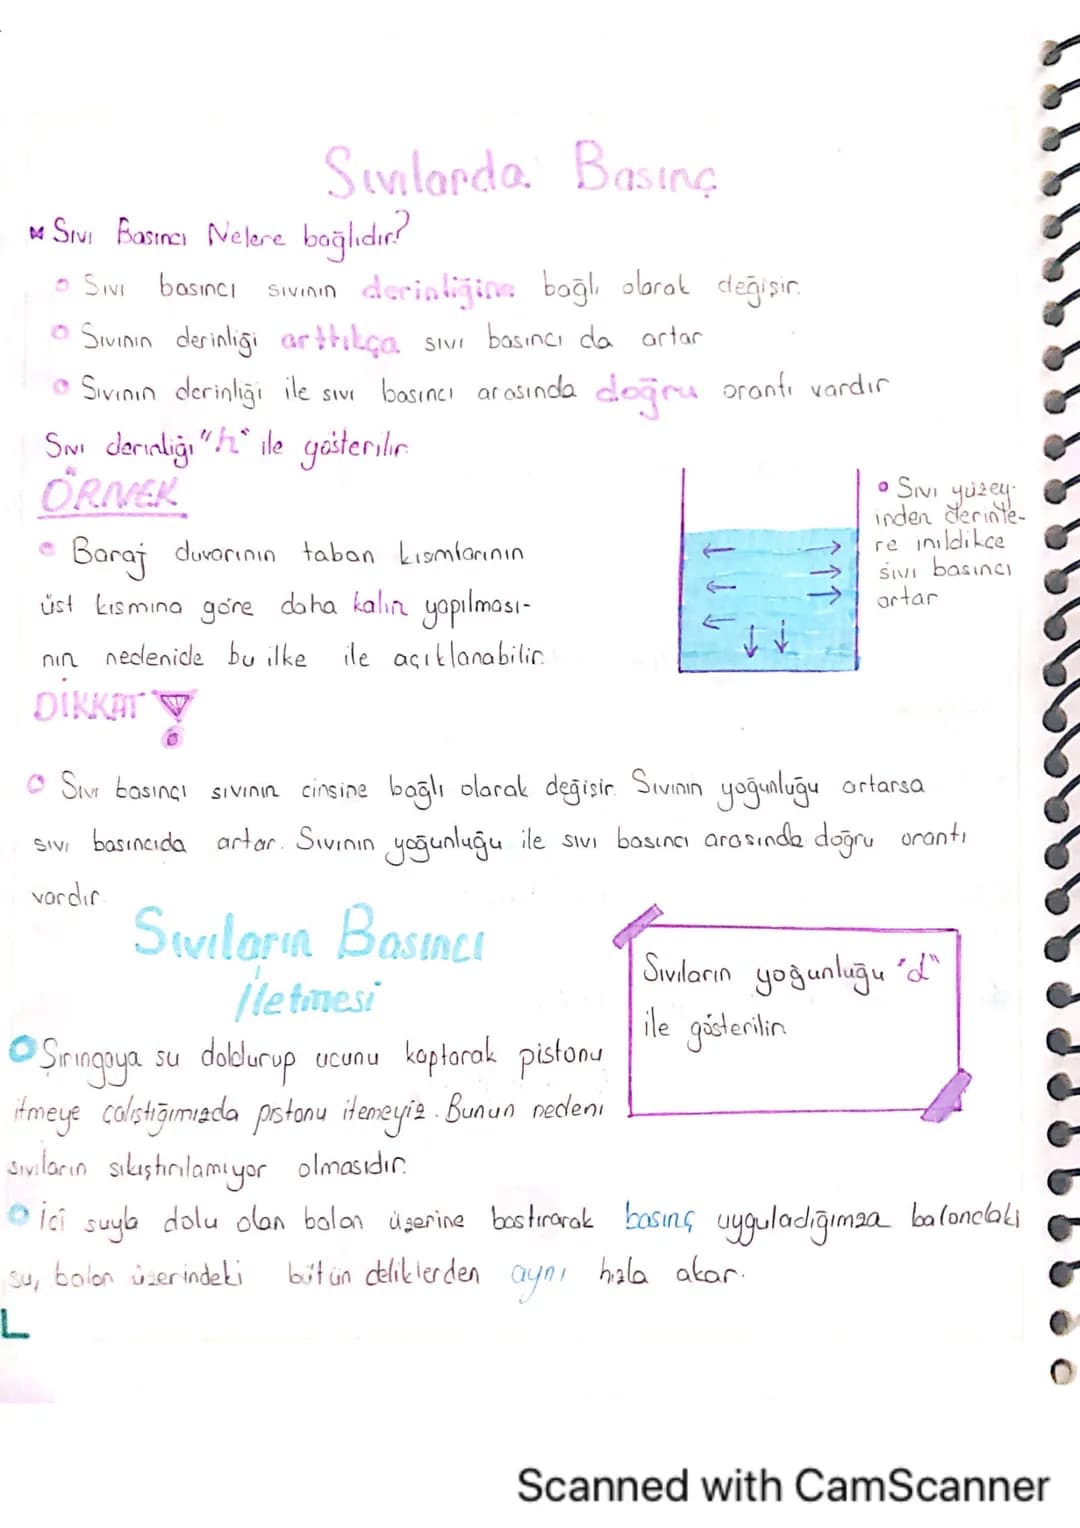 Sıvılarda Basınç
Sıvı Basıncı Nelere bağlıdır?
Sıvı basıncı sıvının derinliğine bağlı olarak değişir.
Sıvının derinliği arttıkça sıvı basıncı da artar
Sıvının derinliği ile sıvı basıncı arasında doğru orantı vardır
Sıvı derinliği "h" ile gösterilir.
ÖRNEK
Baraj duvarının taban kısımlarının
üst kısmına göre daha kalın yapılması-
nın nedenide bu ilke ile açıklanabilir.
Sıvı yüzey-
inden derinle-
re inildikçe
sıvı basıncı
artar
DİKKAT
Sıvı basınçı sıvının cinsine bağlı olarak değişir. Sıvının yoğunluğu artarsa
sıvı basıncıda artar. Sıvının yoğunluğu ile sıvı basıncı arasında doğru orantı
vardır.
Sıvıların Basıncı
İletmesi
Sıvıların yoğunluğu "d"
ile gösterilir.
Şırıngaya su doldurup ucunu kaptarak pistonu
itmeye çalıştığımızda pistonu itemeyiz. Bunun nedeni
sıvıların sıkıştırılamıyor olmasıdır.
İçi suyla dolu olan balon üzerine bastırarak basınç uyguladığımıza balondaki
su, balon üzerindeki bütün deliklerden aynı hızla akar.
Scanned with CamScanner